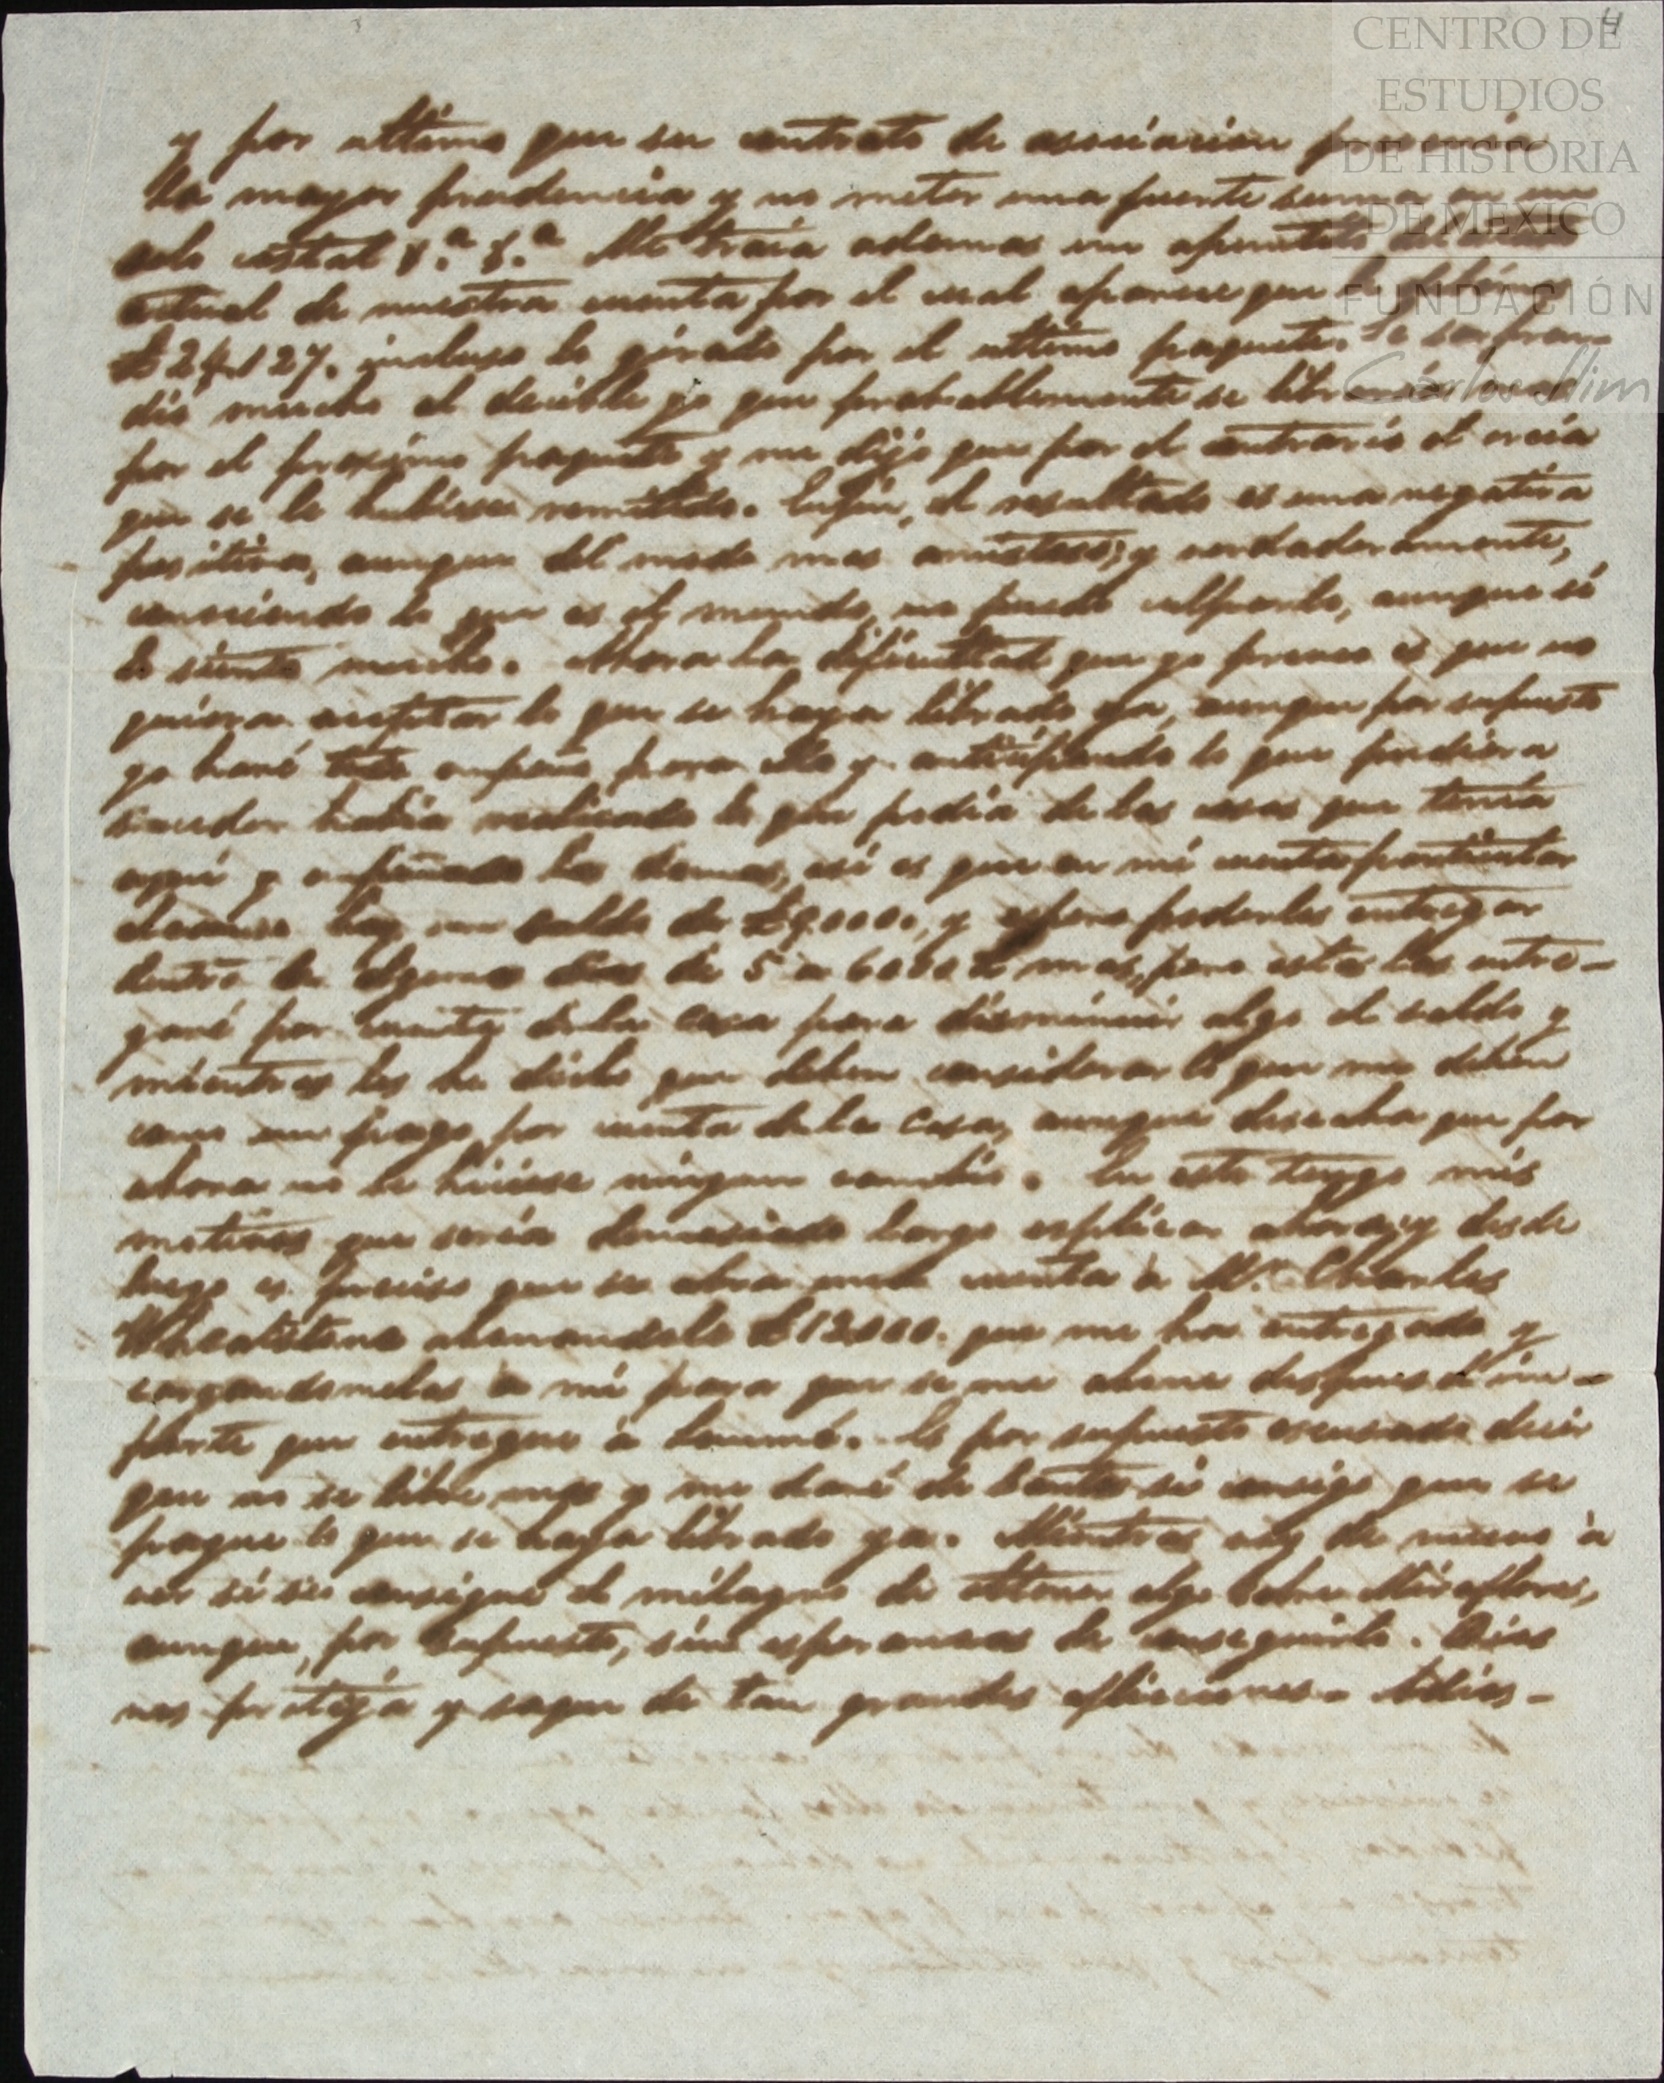 4
CENTRO DE
ESTUDIOS
DE HISTORIA
DE MÉXICO
FUNDACIÓN
Carlos Slim
y por ultimo que su contrato de asociacion prevenia
la mayor prudencia y no meter una fuerte suma en un
solo costal &.ª &.ª Me traia ademas un apuntito del estado
actual de nuestra cuenta por el cual aparece que le debemos
£24,127. incluso lo girado por el ultimo paquete. Se sorpren-
dió mucho al decirle yo que probablemente se libraria mas
por el proximo paquete y me dijo que por el contrario el creia
que se le hubiese remitido. Enfin, el resultado es una negativa
positiva, aunque del modo mas amistoso; y verdaderamente,
conociendo lo que es el mundo, no puedo culparlo, aunque si
lo siento mucho. Ahora la dificultad que yo preveo es que no
quiera aceptar lo que se haya librado ya, aunque por supuesto
yo haré todo empeño para ello y anticipando lo que pudiera
suceder habia realizado lo que podia de las cosas que tenia
aqui y empeñado las demas, asi es que en mi cuenta particular
alcanzo hoy un saldo de £9.000., y espero poderles entregar
dentro de algunos dias de 5 a 6000 £ mas, pero estas las entre-
garé por cuenta de la casa para disminuir algo el saldo y
mientras les he dicho que deben considerar lo que me deben
como un pago por cuenta de la casa, aunque deseaba que por
ahora no se hiciese ningun cambio. En esto tengo mis
motivos que seria demasiado largo esplicar ahora; y desde
luego es preciso que se abra una cuenta a Mr. Charles
Wheatstone abonandole £12.000. que me ha entregado y
cargandomelas a mi para que se me abone despues el im-
porte que entregue a Lemmé. Es por supuesto escusado decir
que no se libre mas y me daré de santos si consigo que se
pague lo que se haya librado ya. Mientras voy de nuevo à
ver si se consigue el milagro de obtener algo sobre Miraflores,
aunque, por supuesto, sin esperanzas de conseguirlo. Dios
nos proteja y saque de tan grandes aflicciones. Adios.